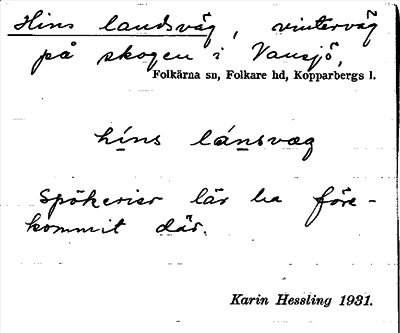 Hins landsväg, vinterväg
på skogen i Vansjö,
Folkärna sn, Folkare hd, Kopparbergs l.
híns lánsvæg
Spökerier lär ha före-
kommit där.
Karin Hessling 1931.